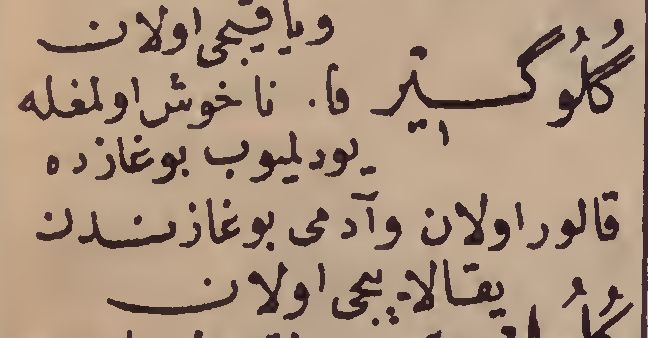 ویا قیجی اولان
گُلُوگیر فا. ناخوش اولمغله
یودلیوب بوغازده
قالور اولان وآدمی بوغازندن
یقالایجی اولان